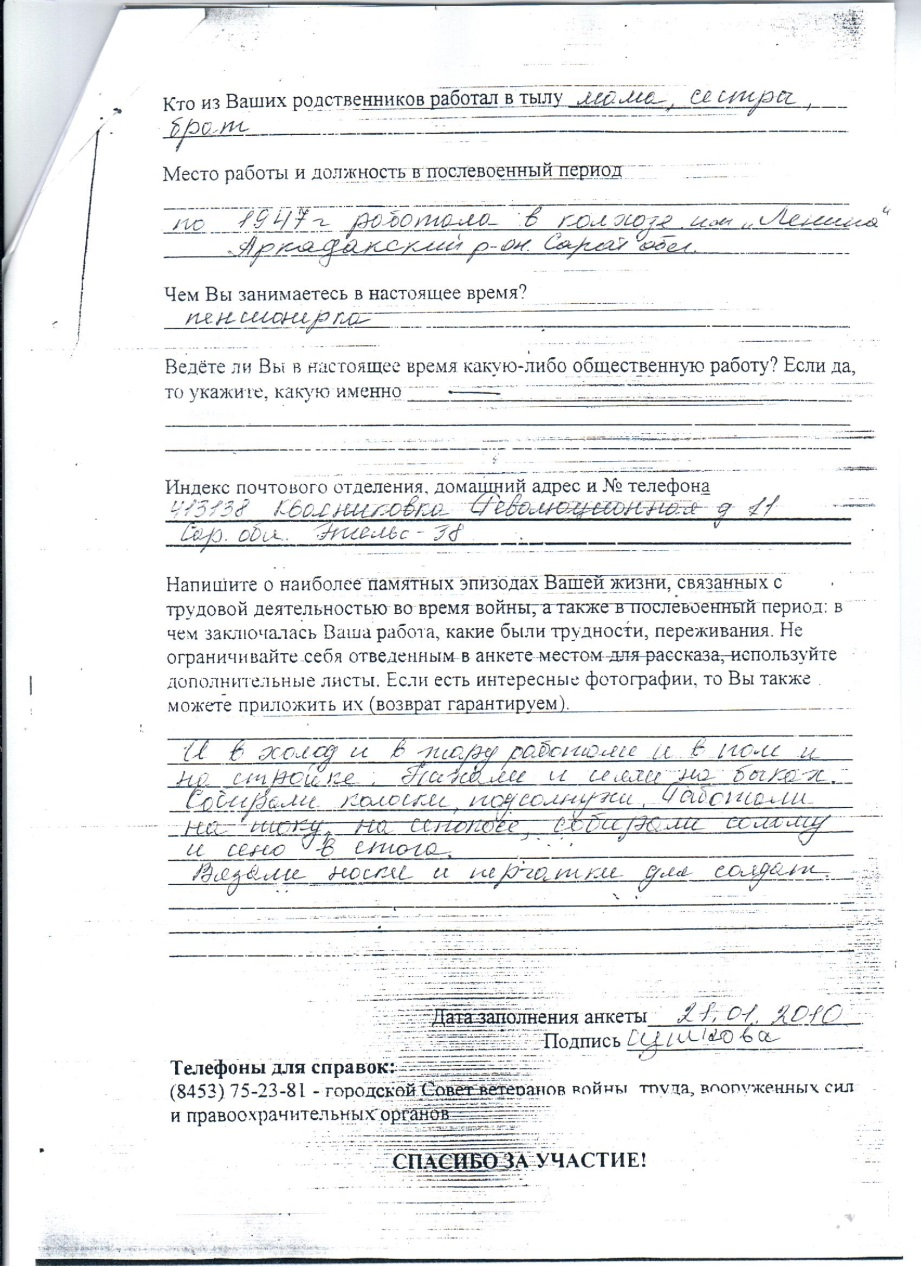 Кто из Ваших родственников работал в тылу мама, сестры,
брат
Место работы и должность в послевоенный период
по 1947 г работала в колхозе им „Ленина“
Аркадакский р-он. Сарат обл.
Чем Вы занимаетесь в настоящее время?
пенсионерка
Ведёте ли Вы в настоящее время какую-либо общественную работу? Если да,
то укажите, какую именно —
Индекс почтового отделения, домашний адрес и № телефона
413138 Квасниковка Революционная д 11
Сар. обл. Энгельс-38
Напишите о наиболее памятных эпизодах Вашей жизни, связанных с
трудовой деятельностью во время войны, а также в послевоенный период: в
чем заключалась Ваша работа, какие были трудности, переживания. Не
ограничивайте себя отведенным в анкете местом для рассказа, используйте
дополнительные листы. Если есть интересные фотографии, то Вы также
можете приложить их (возврат гарантируем).
И в холод и в жару работали и в поле и
на стройке. Пахали и сеяли на быках.
Собирали колоски, подсолнухи. Работали
на току, на сенокосе, собирали солому
и сено в стога.
Вязали носки и перчатки для солдат.
Дата заполнения анкеты 28.01.2010
Подпись
Телефоны для справок:
(8453) 75-23-81 - городской Совет ветеранов войны, труда, вооруженных сил
и правоохранительных органов
СПАСИБО ЗА УЧАСТИЕ!